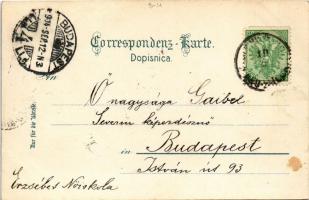 Correspondenz-Karte.
Dopisnica.
BUDAPEST
An
Ő nagysága Gaibel
Severin képezdésznő
in Budapest
István út 93
Erzsébet Nőiskola
Nur für die Adresse.